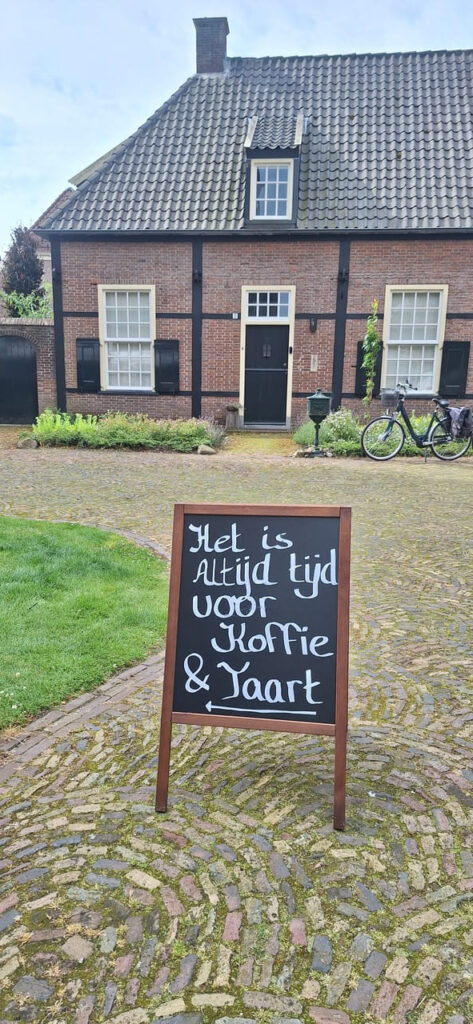 Het is
Altijd tijd
voor
Koffie
& Taart